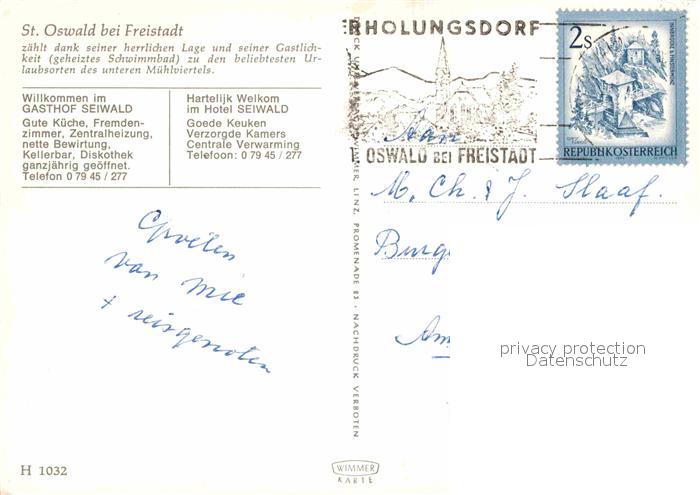 St. Oswald bei Freistadt
zählt dank seiner herrlichen Lage und seiner Gastlich-
keit (geheiztes Schwimmbad) zu den beliebtesten Ur-
laubsorten des unteren Mühlviertels.
Willkommen im
GASTHOF SEIWALD
Gute Küche, Fremden-
zimmer, Zentralheizung,
nette Bewirtung,
Kellerbar, Diskothek
ganzjährig geöffnet.
Telefon 0 79 45 / 277
Hartelijk Welkom
im Hotel SEIWALD
Goede Keuken
Verzorgde Kamers
Centrale Verwarming
Telefoon: 0 79 45 / 277
Groeten
van Mie
+ reisgenoten
H 1032
WIMMER, LINZ, PROMENADE 23 · NACHDRUCK VERBOTEN.
WIMMER
KARTE
ERHOLUNGSDORF
OSWALD BEI FREISTADT
2s
REPUBLIK ÖSTERREICH
Aan
M. Ch. & J. Slaaf.
Burg
Am
privacy protection
Datenschutz